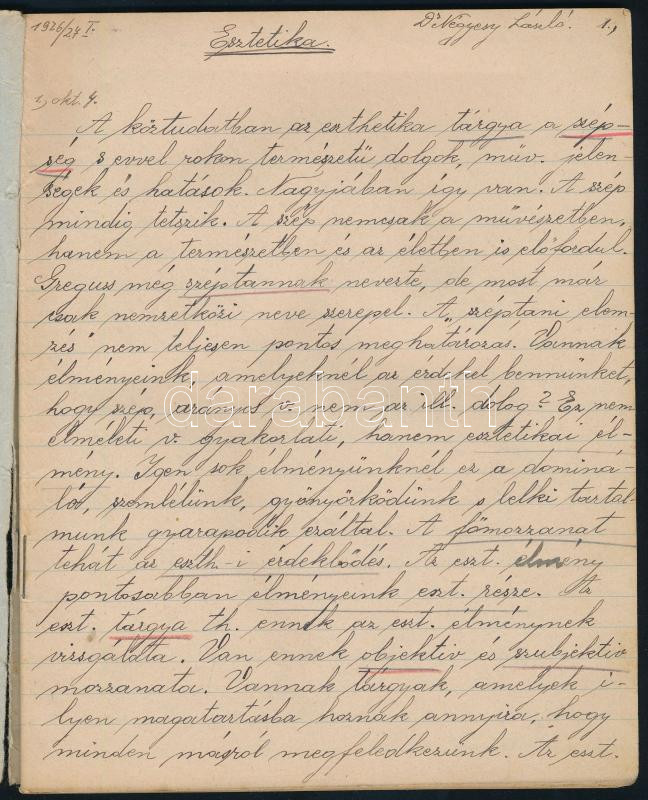 1926/27 I. Dr Négyesy László. 1.,
Esztetika.
1, okt. 4.
A köztudatban az eszthetika tárgya a szép-
ség s evvel rokon természetű dolgok, műv. jelen-
ségek és hatások. Nagyjában így van. A szép
mindig tetszik. A szép nemcsak a művészetben,
hanem a természetben és az életben is előfordul.
Greguss még széptannak nevezte, de most már
csak nemzetközi neve szerepel. A „széptani elem-
zés" nem teljesen pontos meghatározás. Vannak
élményeink, amelyeknél az érdekel bennünket,
hogy szép, arányos v. nem az ill. dolog? Ez nem
elméleti v. gyakorlati, hanem esztétikai él-
mény. Igen sok élményünknél ez a dominá 
ló, szemlélünk, gyönyörködünk s lelki tartal-
munk gyarapodik ezáltal. A főmozzanat
tehát az eszth-i érdeklődés. Az eszt. élmény
pontosabban élményeink eszt. része. Az
eszt. tárgya th. ennek az eszt. élménynek
vizsgálata. Van ennek objektiv és szubjektiv
mozzanata. Vannak tárgyak, amelyek i-
lyen magatartásba hoznak annyira, hogy
minden másról megfeledkezünk. Az eszt.
darabanth